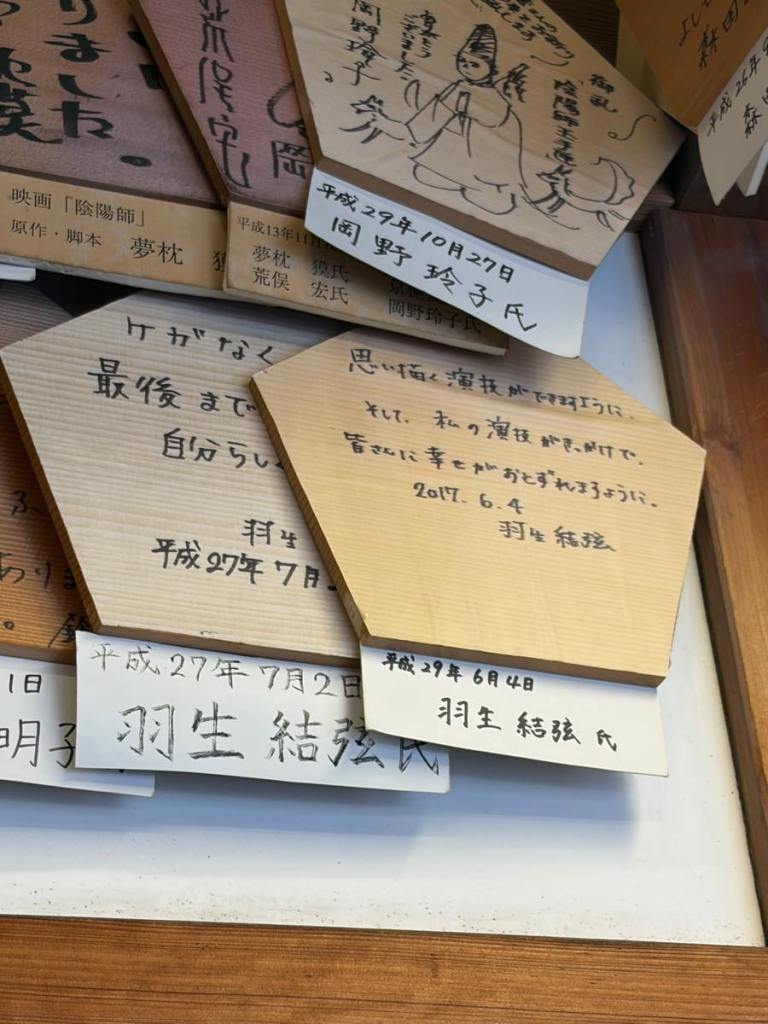 りました
荒俣宏
映画「陰陽師」
原作・脚本 夢枕
平成13年11月
夢枕 獏氏
荒俣 宏氏
岡野玲子氏
御礼
陰陽師
岡野玲子
平成29年10月27日
岡野 玲子氏
平成26年
森田
ケガなく
最後まで
自分らし
羽生
平成27年7月
平成27年7月2日
羽生 結弦氏
思い描く演技ができますように。
そして、私の演技がきっかけで、
皆さんに幸せがおとずれますように。
2017.6.4
羽生結弦
平成29年6月4日
羽生結弦 氏
あり
1日
明子